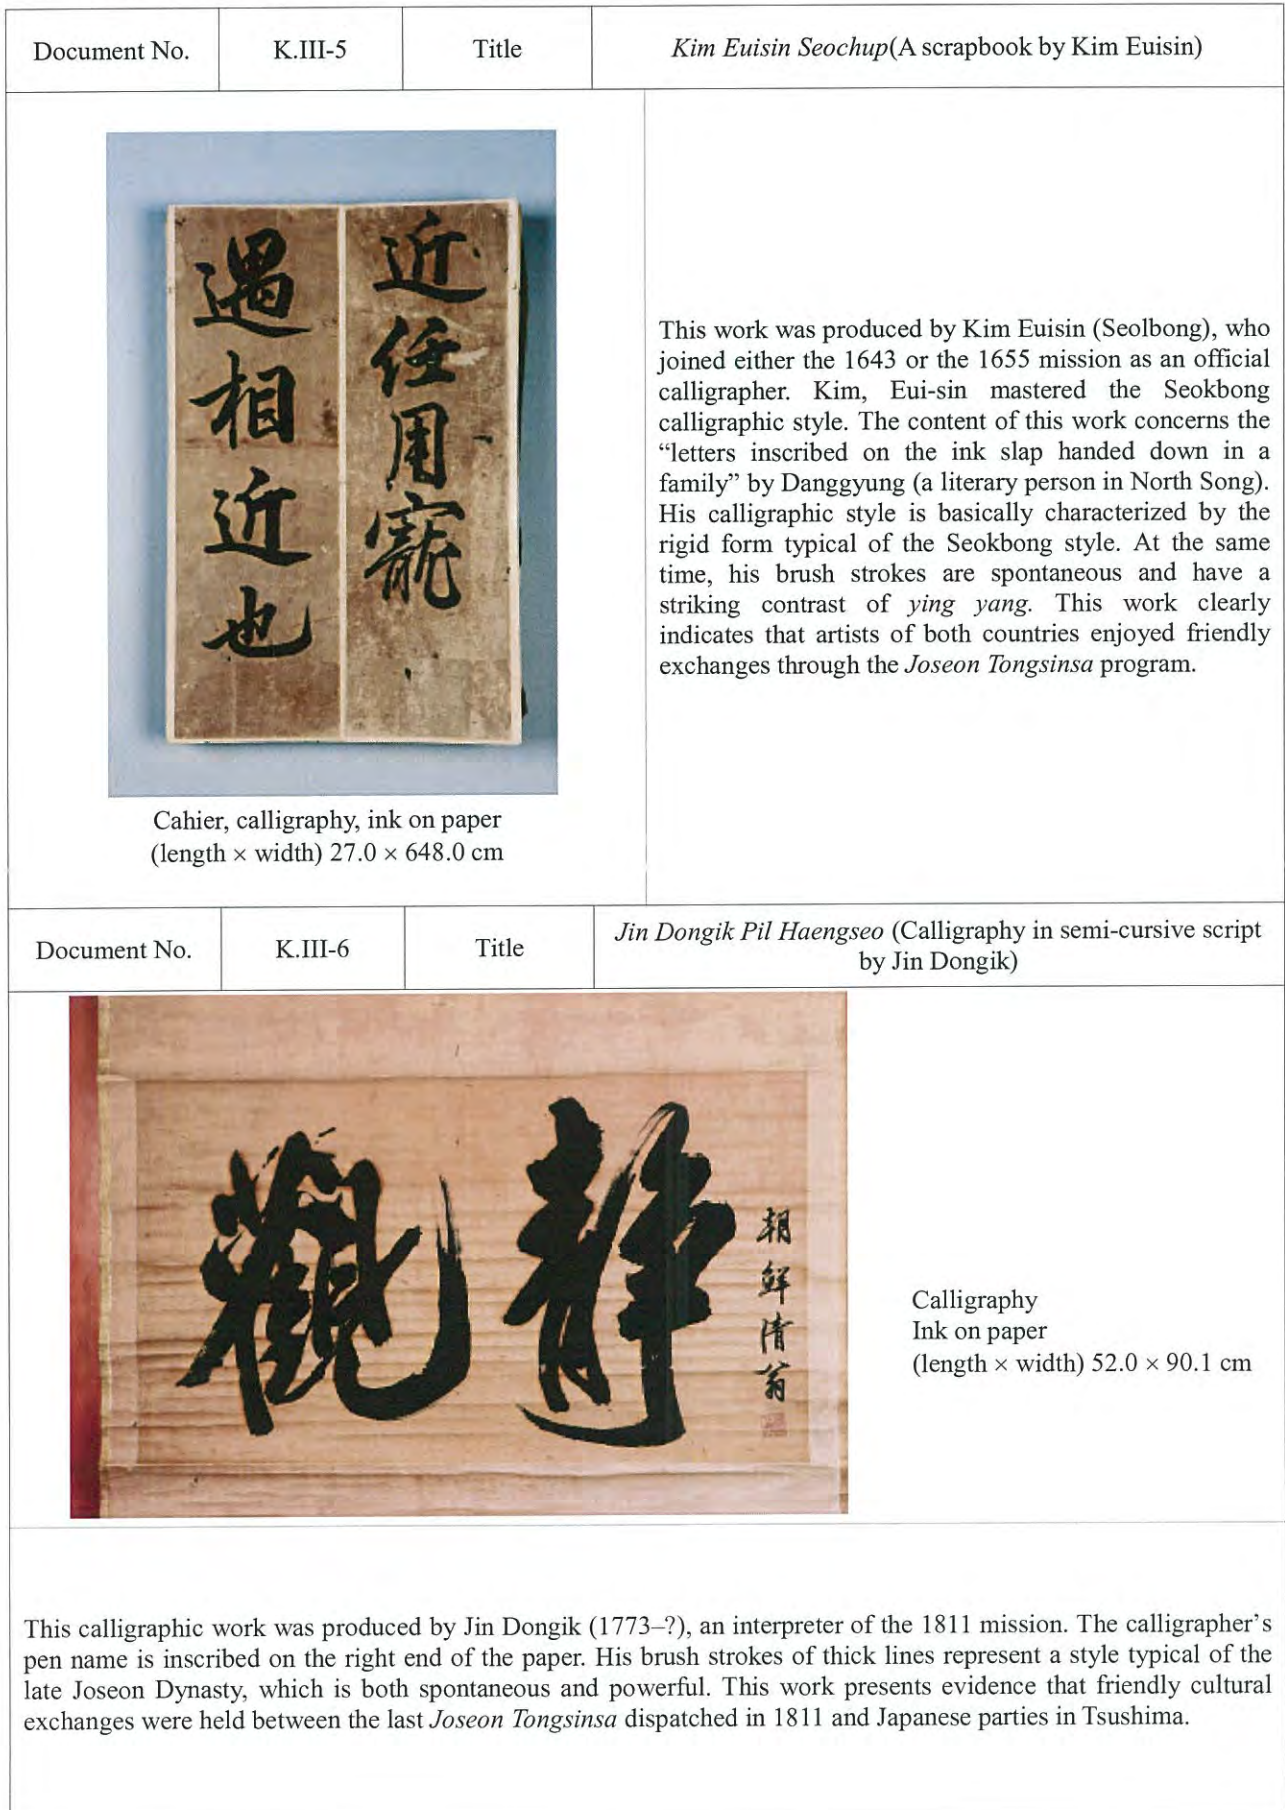 Document No. K.III-5 Title Kim Euisin Seochup(A scrapbook by Kim Euisin)
近任用寵
遇相近也
Cahier, calligraphy, ink on paper
(length × width) 27.0 × 648.0 cm
This work was produced by Kim Euisin (Seolbong), who
joined either the 1643 or the 1655 mission as an official
calligrapher. Kim, Eui-sin mastered the Seokbong
calligraphic style. The content of this work concerns the
“letters inscribed on the ink slap handed down in a
family” by Danggyung (a literary person in North Song).
His calligraphic style is basically characterized by the
rigid form typical of the Seokbong style. At the same
time, his brush strokes are spontaneous and have a
striking contrast of ying yang. This work clearly
indicates that artists of both countries enjoyed friendly
exchanges through the Joseon Tongsinsa program.
Document No. K.III-6 Title Jin Dongik Pil Haengseo (Calligraphy in semi-cursive script
by Jin Dongik)
朝鮮清翁
靜觀
Calligraphy
Ink on paper
(length × width) 52.0 × 90.1 cm
This calligraphic work was produced by Jin Dongik (1773–?), an interpreter of the 1811 mission. The calligrapher’s
pen name is inscribed on the right end of the paper. His brush strokes of thick lines represent a style typical of the
late Joseon Dynasty, which is both spontaneous and powerful. This work presents evidence that friendly cultural
exchanges were held between the last Joseon Tongsinsa dispatched in 1811 and Japanese parties in Tsushima.